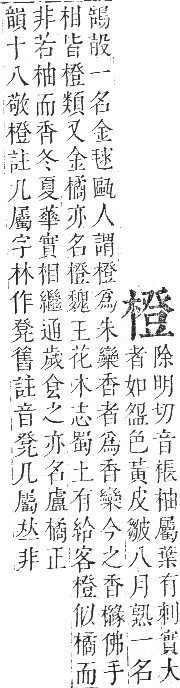 橙
除明切音棖柚屬葉有刺實大
者如盌色黃皮皺八月熟一名
鵠殼一名金毬甌人謂橙爲朱欒香者爲香欒今之香櫞佛手
相皆橙類又金橘亦名橙魏王花木志蜀土有給客橙似橘而
非若柚而香冬夏華實相繼通歲食之亦名盧橘正
韻十八敬橙註几屬字林作凳舊註音凳几屬𠀤非